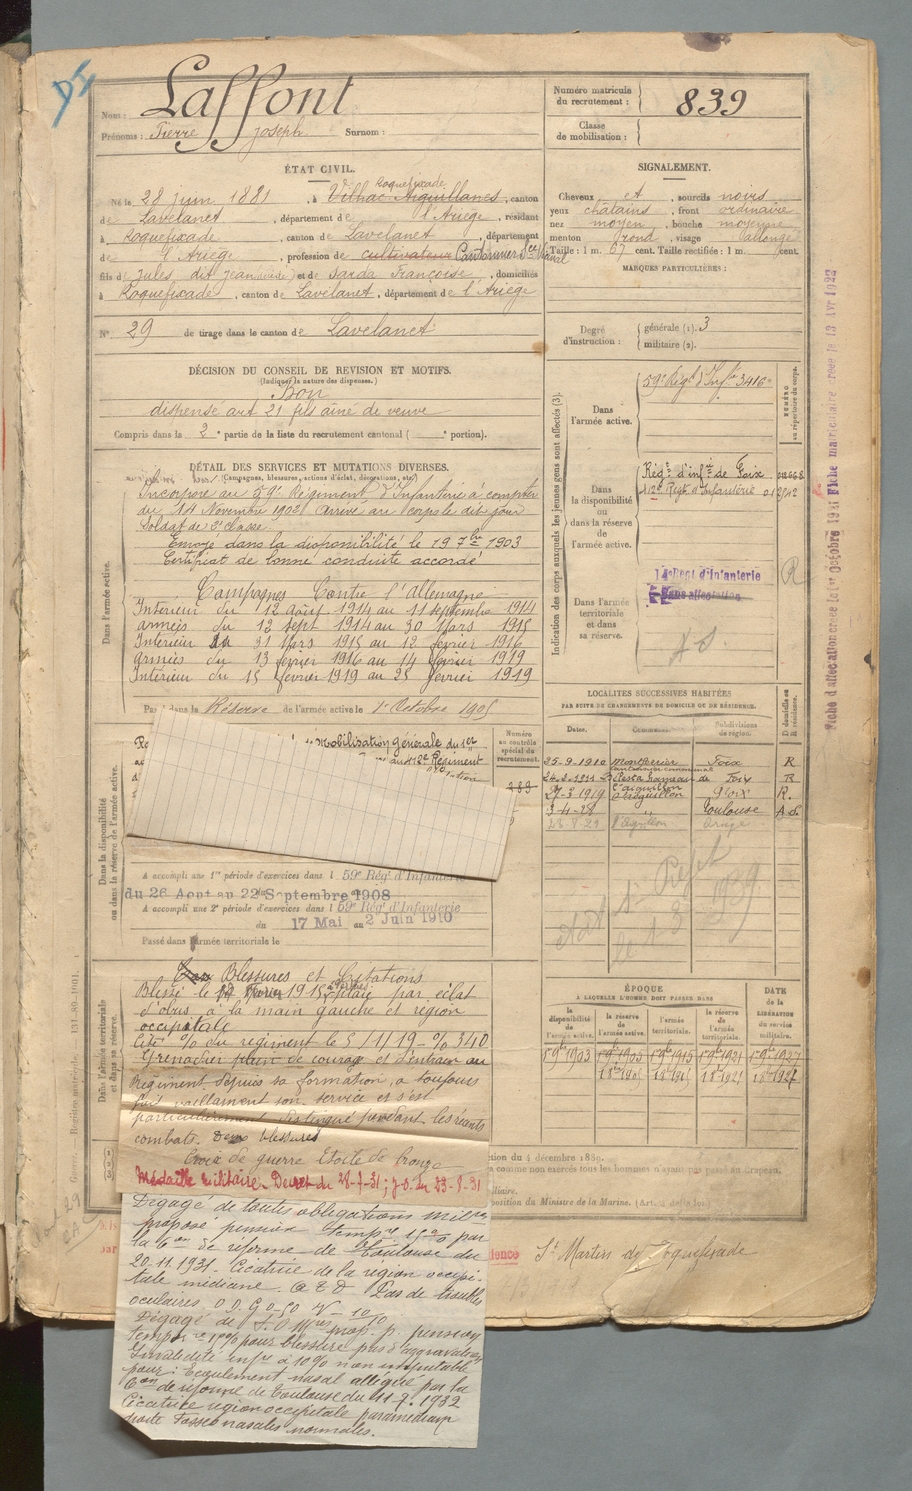 Nom : Laffont
Prénoms : Pierre Joseph Surnom :
Numéro matricule du recrutement : 839
Classe de mobilisation :
ÉTAT CIVIL.
Roquefixade
Né le 28 juin 1881, à Vilhac Aiguillanes, canton
de Lavelanet, département de l'Ariège, résidant
à Roquefixade, canton de Lavelanet, département
de l'Ariège, profession de cultivateur Cantonnier
fils de Jules dit Jean et de Sarda Françoise, domiciliés
à Roquefixade, canton de Lavelanet, département de l'Ariège
N° 29 de tirage dans le canton de Lavelanet
SIGNALEMENT.
Cheveux et, sourcils noirs
yeux châtains, front ordinaire
nez moyen, bouche moyenne
menton rond, visage allongé
Taille : 1 m. 67 cent. Taille rectifiée : 1 m. cent.
MARQUES PARTICULIÈRES :
Degré d'instruction : générale (1). 3
militaire (2).
DÉCISION DU CONSEIL DE REVISION ET MOTIFS.
(Indiquer la nature des dispenses.)
Bon
dispensé art 21 fils aîné de veuve
Compris dans la 2e partie de la liste du recrutement cantonal ( e portion).
DÉTAIL DES SERVICES ET MUTATIONS DIVERSES.
(Campagnes, blessures, actions d'éclat, décorations, etc.)
Dans l'armée active.
Incorporé au 59e Régiment d'Infanterie à compter
du 14 Novembre 1902 Arrivé au corps le dit jour
Soldat de 2e classe
Envoyé dans la disponibilité le 19 7bre 1903
Certificat de bonne conduite accordé
Campagnes Contre l'Allemagne
Intérieur du 12 Août 1914 au 11 septembre 1914
armées du 12 sept 1914 au 30 Mars 1915
Intérieur du 31 Mars 1915 au 12 février 1916
armées du 13 février 1916 au 14 février 1919
Intérieur du 15 février 1919 au 25 février 1919
Passé dans la Réserve de l'armée active le 1er Octobre 1905
Indication des corps auxquels les jeunes gens sont affectés (3).
Dans l'armée active.
59e Régt d'Infie 3416
NUMÉRO au répertoire du corps.
Dans la disponibilité ou dans la réserve de l'armée active.
Régt d'infie de Foix
112e Régt d'Infanterie
Dans l'armée territoriale et dans sa réserve.
14e Régt d'Infanterie
Sans affectation
A S.
R
Fiche matriculaire
LOCALITÉS SUCCESSIVES HABITÉES
PAR SUITE DE CHANGEMENTS DE DOMICILE OU DE RÉSIDENCE.
Dates. Communes. Subdivisions de région. D domicile ou R résidence.
25-9-1910 Montferrier Foix R
24-3-1911 Pesta hameau de l'aiguillon Foix R
27-3-1919 l'aiguillon Foix R.
3-4-28 " Toulouse A S.
28-8-29 l'Aiguillon Ariège
Dans la disponibilité ou dans la réserve de l'armée active.
Mobilisation générale du 1er
au 112e Régiment
Numéro au contrôle spécial du recrutement.
A accompli une 1re période d'exercices dans l 59e Rég' d'Infanterie
du 26 Aout au 22 Septembre 1908
A accompli une 2e période d'exercices dans l 59e Rég' d'Infanterie
du 17 Mai au 2 Juin 1910
Passé dans l'armée territoriale le
Dans l'armée territoriale et dans sa réserve.
ÉPOQUE
À LAQUELLE L'HOMME DOIT PASSER DANS
la disponibilité de l'armée active.
la réserve de l'armée active.
l'armée territoriale.
la réserve de l'armée territoriale.
DATE de la LIBÉRATION du service militaire.
Blessures et Citations
Blessé le 1915 plaie par éclat
d'obus, à la main gauche et région
occipitale
Cité % du régiment le 5/1/19 - % 340
Grenadier plein de courage et d'entrain au
Régiment depuis sa formation, a toujours
fait vaillament son service et s'est
particulièrement distingué pendant les récents
combats. Deux blessures
Croix de guerre Etoile de bronze
Médaille militaire - Decret du 28-7-31; J.O. du 23-8-31
Dégagé de toutes obligations milres
proposé pension tempre 15% par
la Con de réforme de Toulouse du
20.11.1931. Cicatrice de la région occipi-
tale médiane. Pas de troubles
oculaires
Dégagé de T.O. Mres prop. p. pension
tempre 10% pour blessure pas d'aggravation
Invalidité infre à 10% non imputable
pour : Ecoulement nasal allégué par la
Con de réforme de Toulouse du 11-7-1932
Cicatrice région occipitale paramédiane
droite Fosses nasales normales.
ction du 4 décembre 1889.
à comme non exercés tous les hommes n'ayant pas passé au drapeau.
position du Ministre de la Marine.
St Martin de Roquefixade